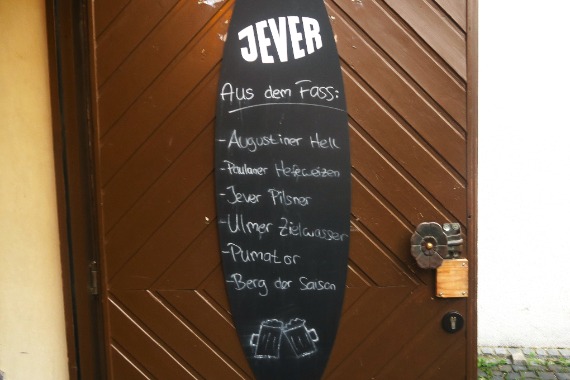 JEVER
Aus dem Fass:
- Augustiner Hell
- Paulaner Hefeweizen
- Jever Pilsner
- Ulmer Zielwasser
- Pumator
- Berg der Saison